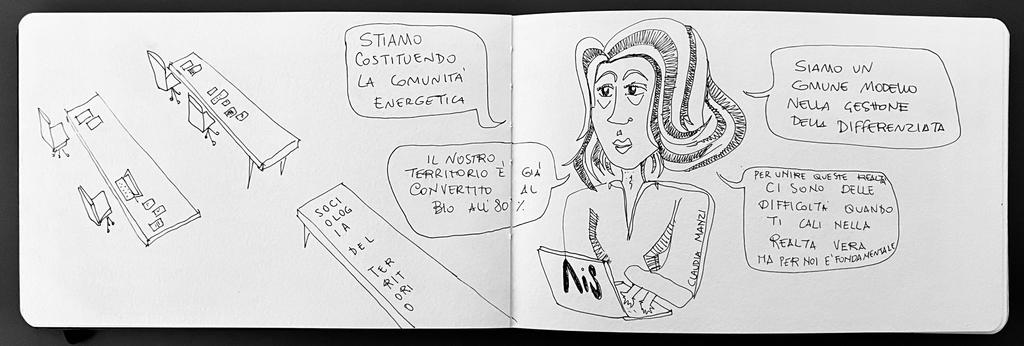 STIAMO
COSTITUENDO
LA COMUNITÀ
ENERGETICA
IL NOSTRO
TERRITORIO È GIÁ
CONVERTITO AL
BIO ALL'80%
SOCI
OLOG
IA
DEL
TER
RIT
ORI
O
SIAMO UN
COMUNE MODELLO
NELLA GESTIONE
DELLA DIFFERENZIATA
PER UNIRE QUESTE REALTÀ
CI SONO DELLE
DIFFICOLTÀ QUANDO
TI CALI NELLA
REALTA VERA
MA PER NOI E' FONDAMENTALE
CLAUDIA MANZI
AIS